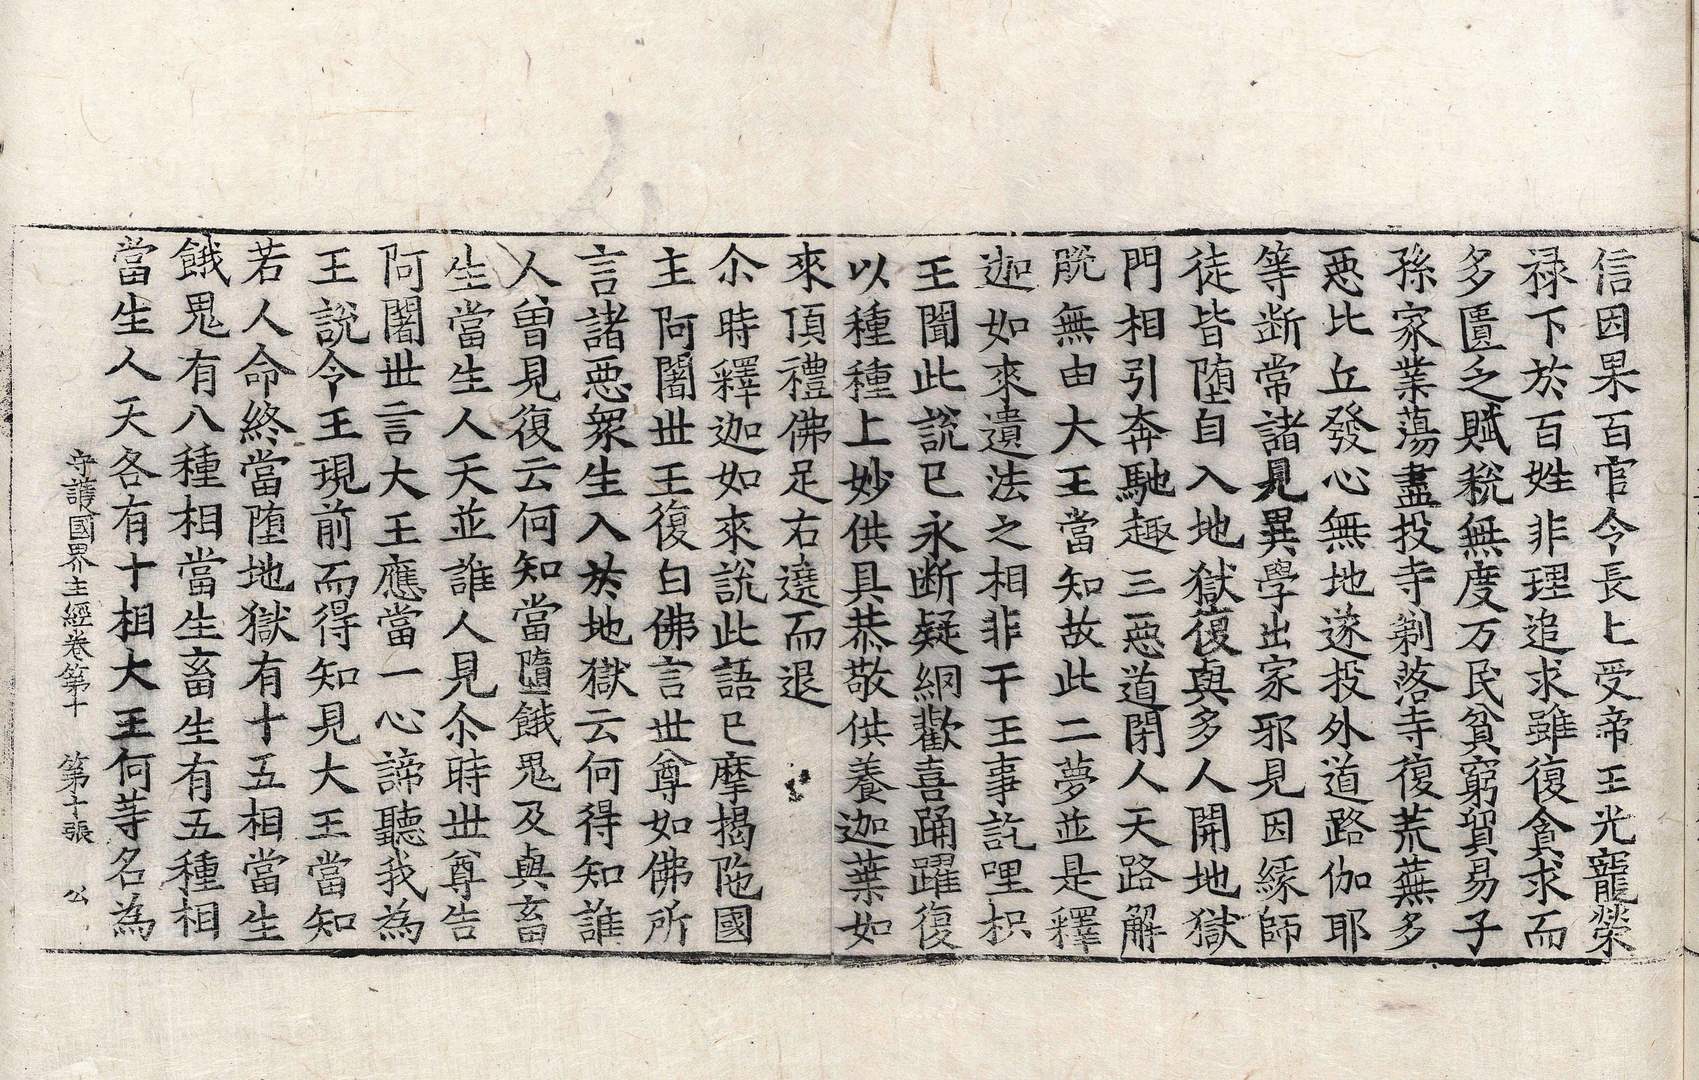 信因果百官令長上受帝王光寵榮
禄下於百姓非理追求雖復貪求而
多匱乏賦稅無度万民貧窮貿易子
孫家業蕩盡投寺剃落寺復荒蕪多
惡比丘發心無地遂投外道路伽耶
等断常諸見異學出家邪見因緣師
徒皆堕自入地獄復與多人開地獄
門相引奔馳趣三惡道閉人天路解
脫無由大王當知故此二夢並是釋
迦如來遺法之相非干王事訖哩枳
王聞此說已永断疑網歡喜踊躍復
以種種上妙供具恭敬供養迦葉如
來頂禮佛足右遶而退
尒時釋迦如來說此語已摩揭陁國
主阿闍世王復白佛言世尊如佛所
言諸惡衆生入於地獄云何得知誰
人曾見復云何知當墮餓鬼及與畜
生當生人天並誰人見尒時世尊告
阿闍世言大王應當一心諦聽我為
王說令王現前而得知見大王當知
若人命終當堕地獄有十五相當生
餓鬼有八種相當生畜生有五種相
當生人天各有十相大王何等名為
守護國界主經卷第十　第十張　公